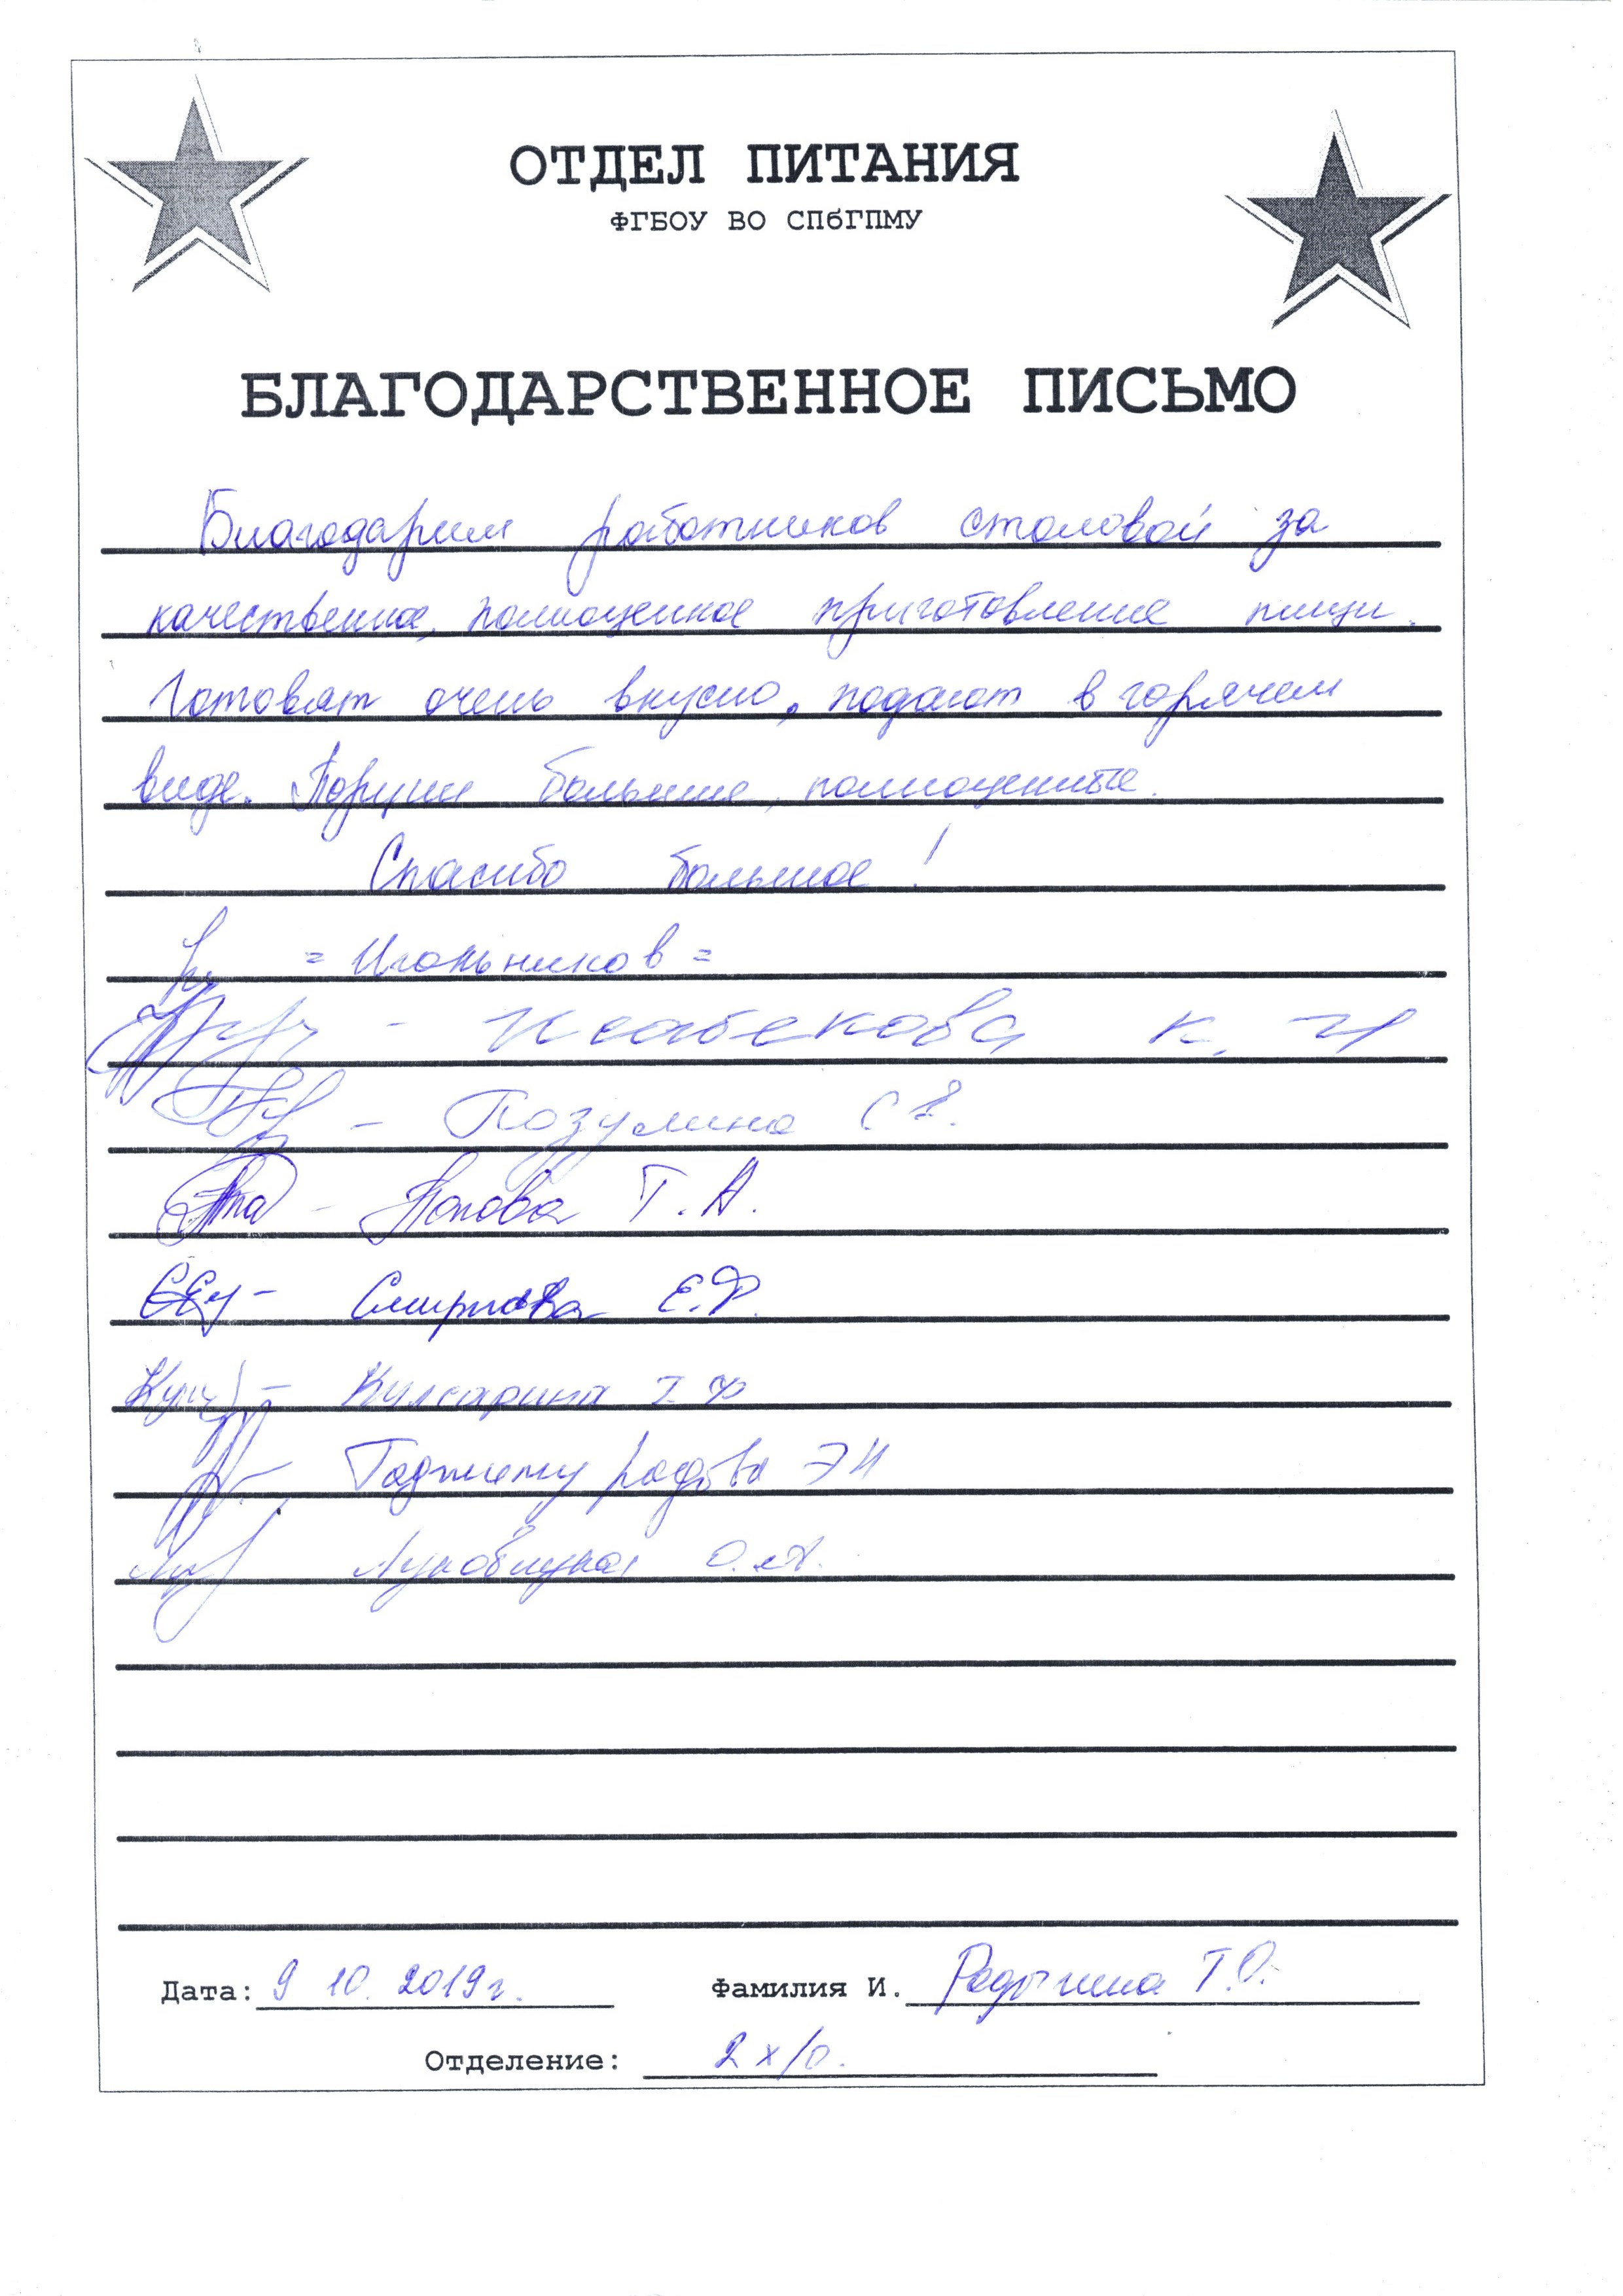 ОТДЕЛ ПИТАНИЯ
ФГБОУ ВО СПбГПМУ
БЛАГОДАРСТВЕННОЕ ПИСЬМО
Благодарим работников столовой за
качественное, полноценное приготовление пищи.
Готовят очень вкусно, подают в горячем
виде. Порции большие, полноценные.
Спасибо большое!
= Игольников =
- Исабекова К. И
- Позулина С
- Попова Т. А.
- Смирнова Е.Ф.
- Кулсарина
- Гаджимурадова Э И
О.А.
Дата: 9 10. 2019г. Фамилия И. Радыгина Т.О.
Отделение: 2 х/о.